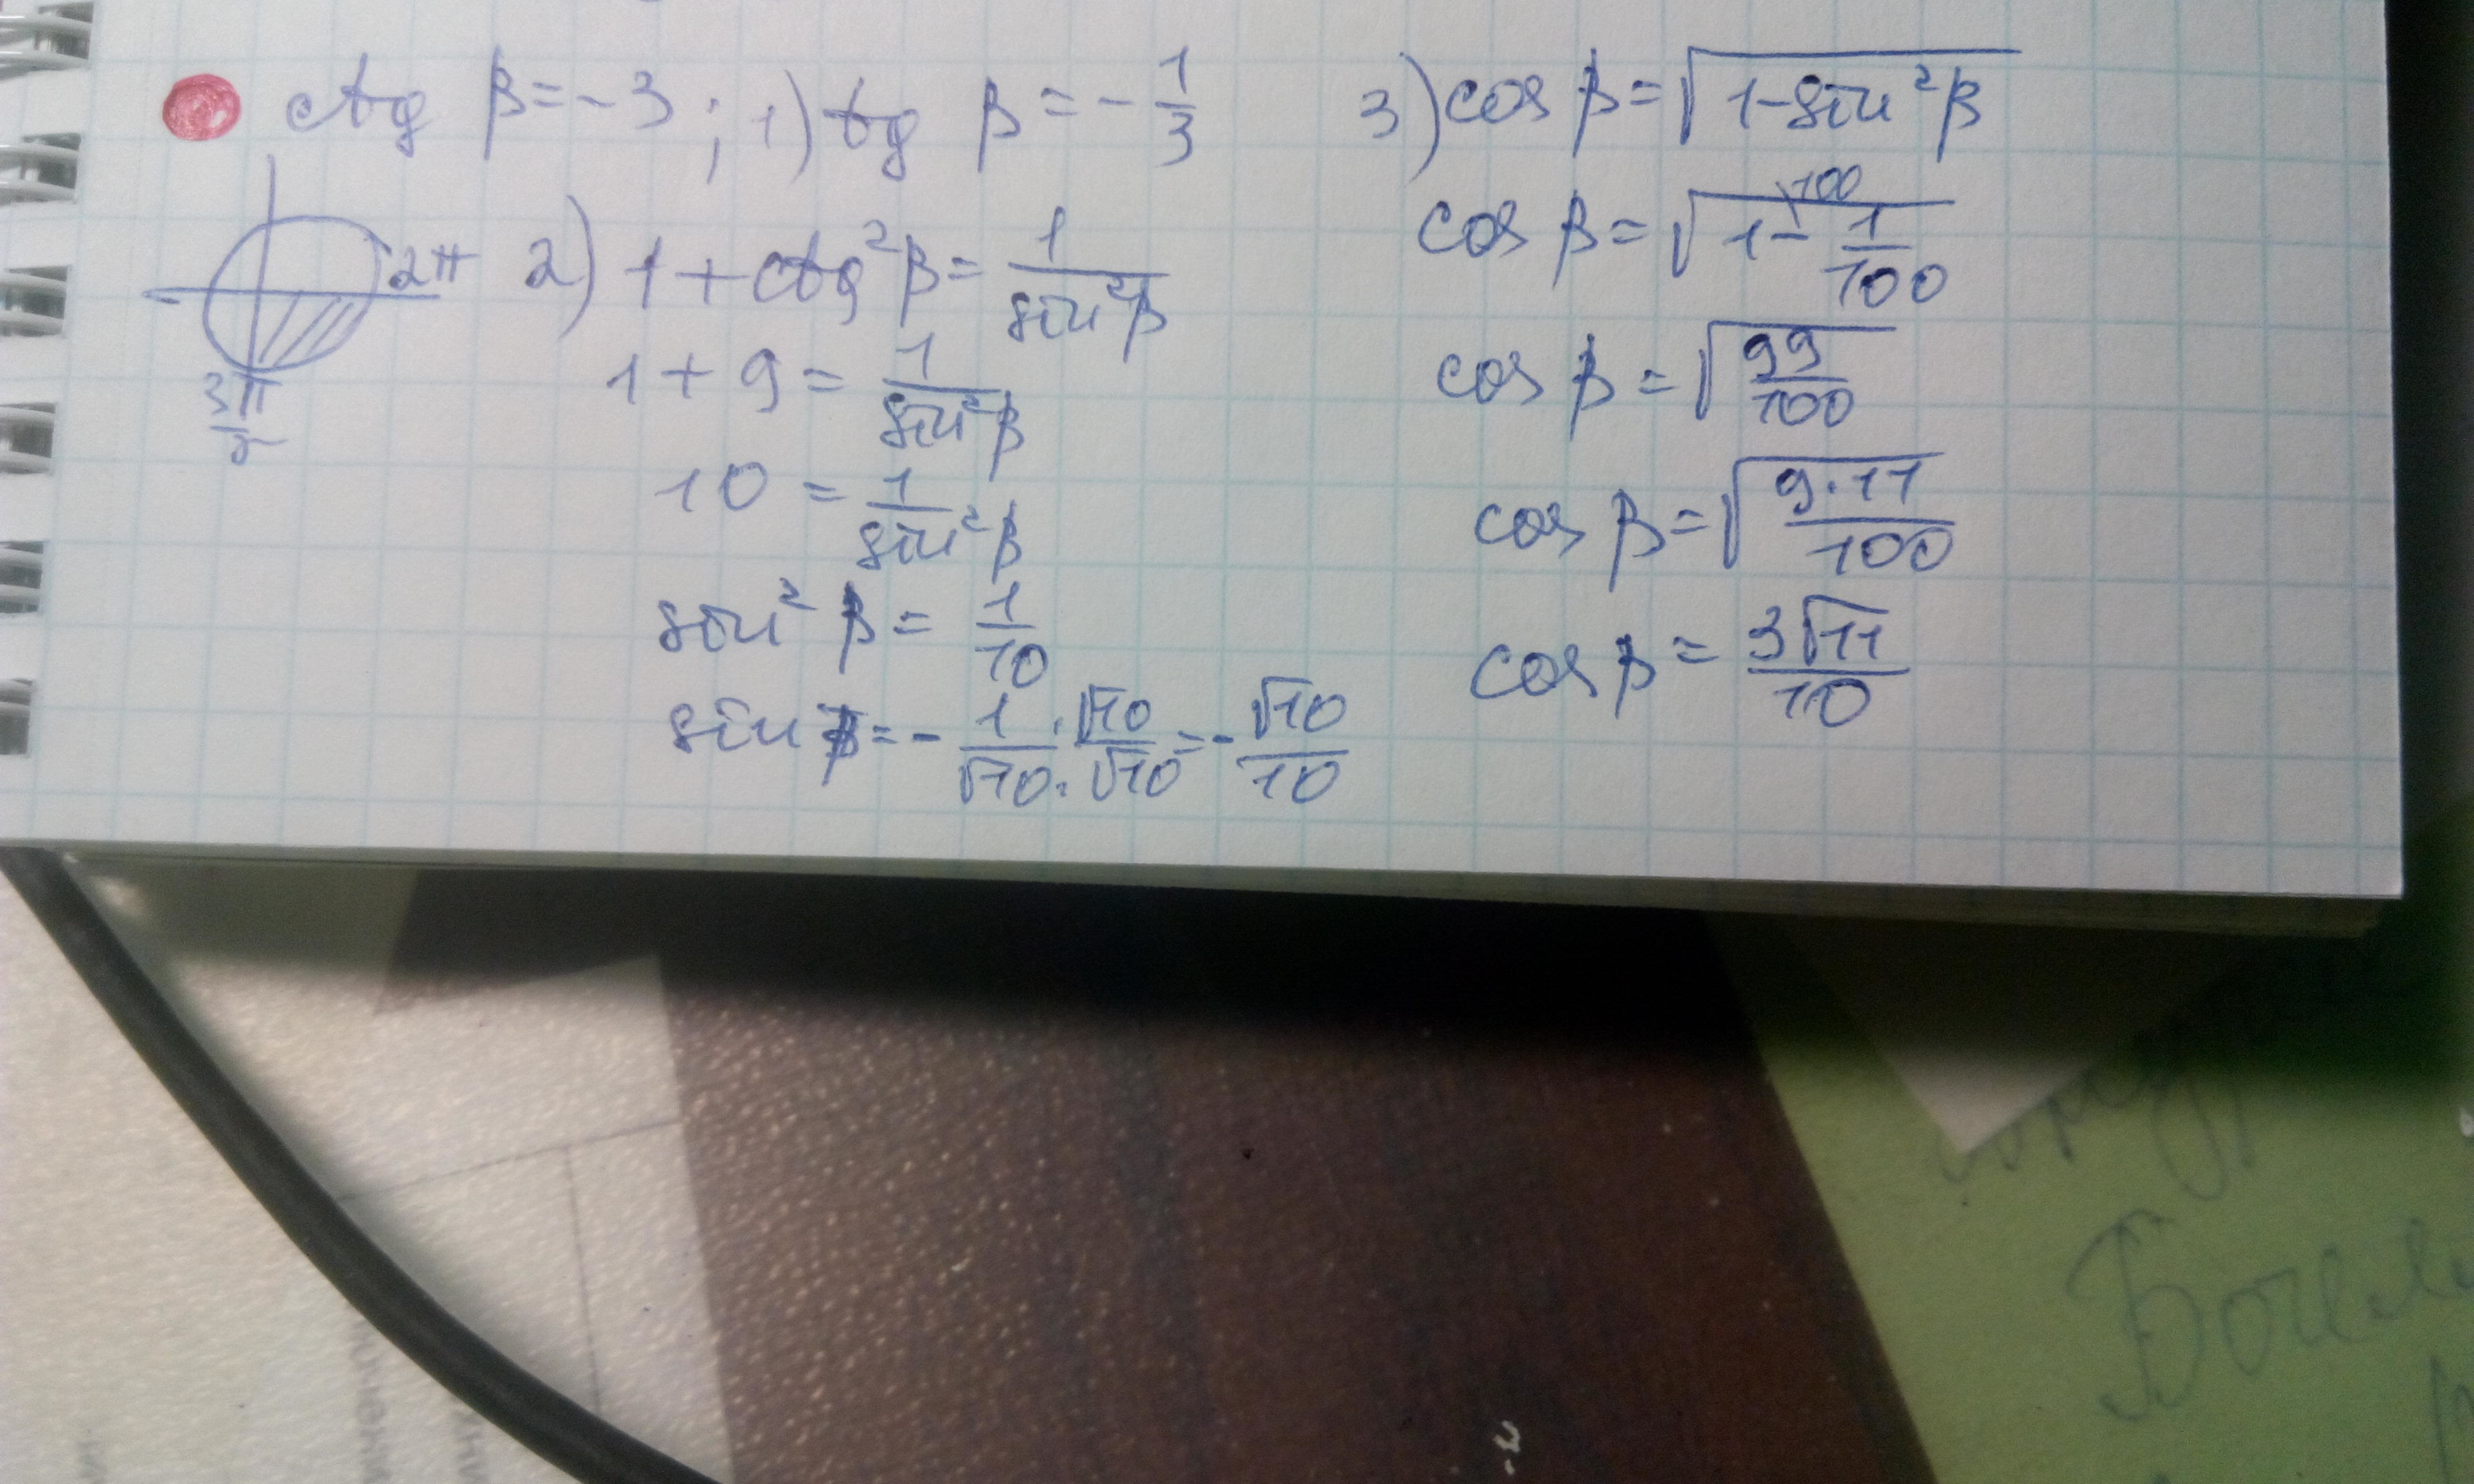 ctg β = -3 ; 1) tg β = -1/3
2π
3π/2
2) 1 + ctg²β = 1/sin²β
1 + 9 = 1/sin²β
10 = 1/sin²β
sin²β = 1/10
sin β = - 1/√10 · √10/√10 = - √10/10
3) cos β = √(1-sin²β)
100
cos β = √(1 - 1/100)
cos β = √(99/100)
cos β = √(9·11/100)
cos β = 3√11/10